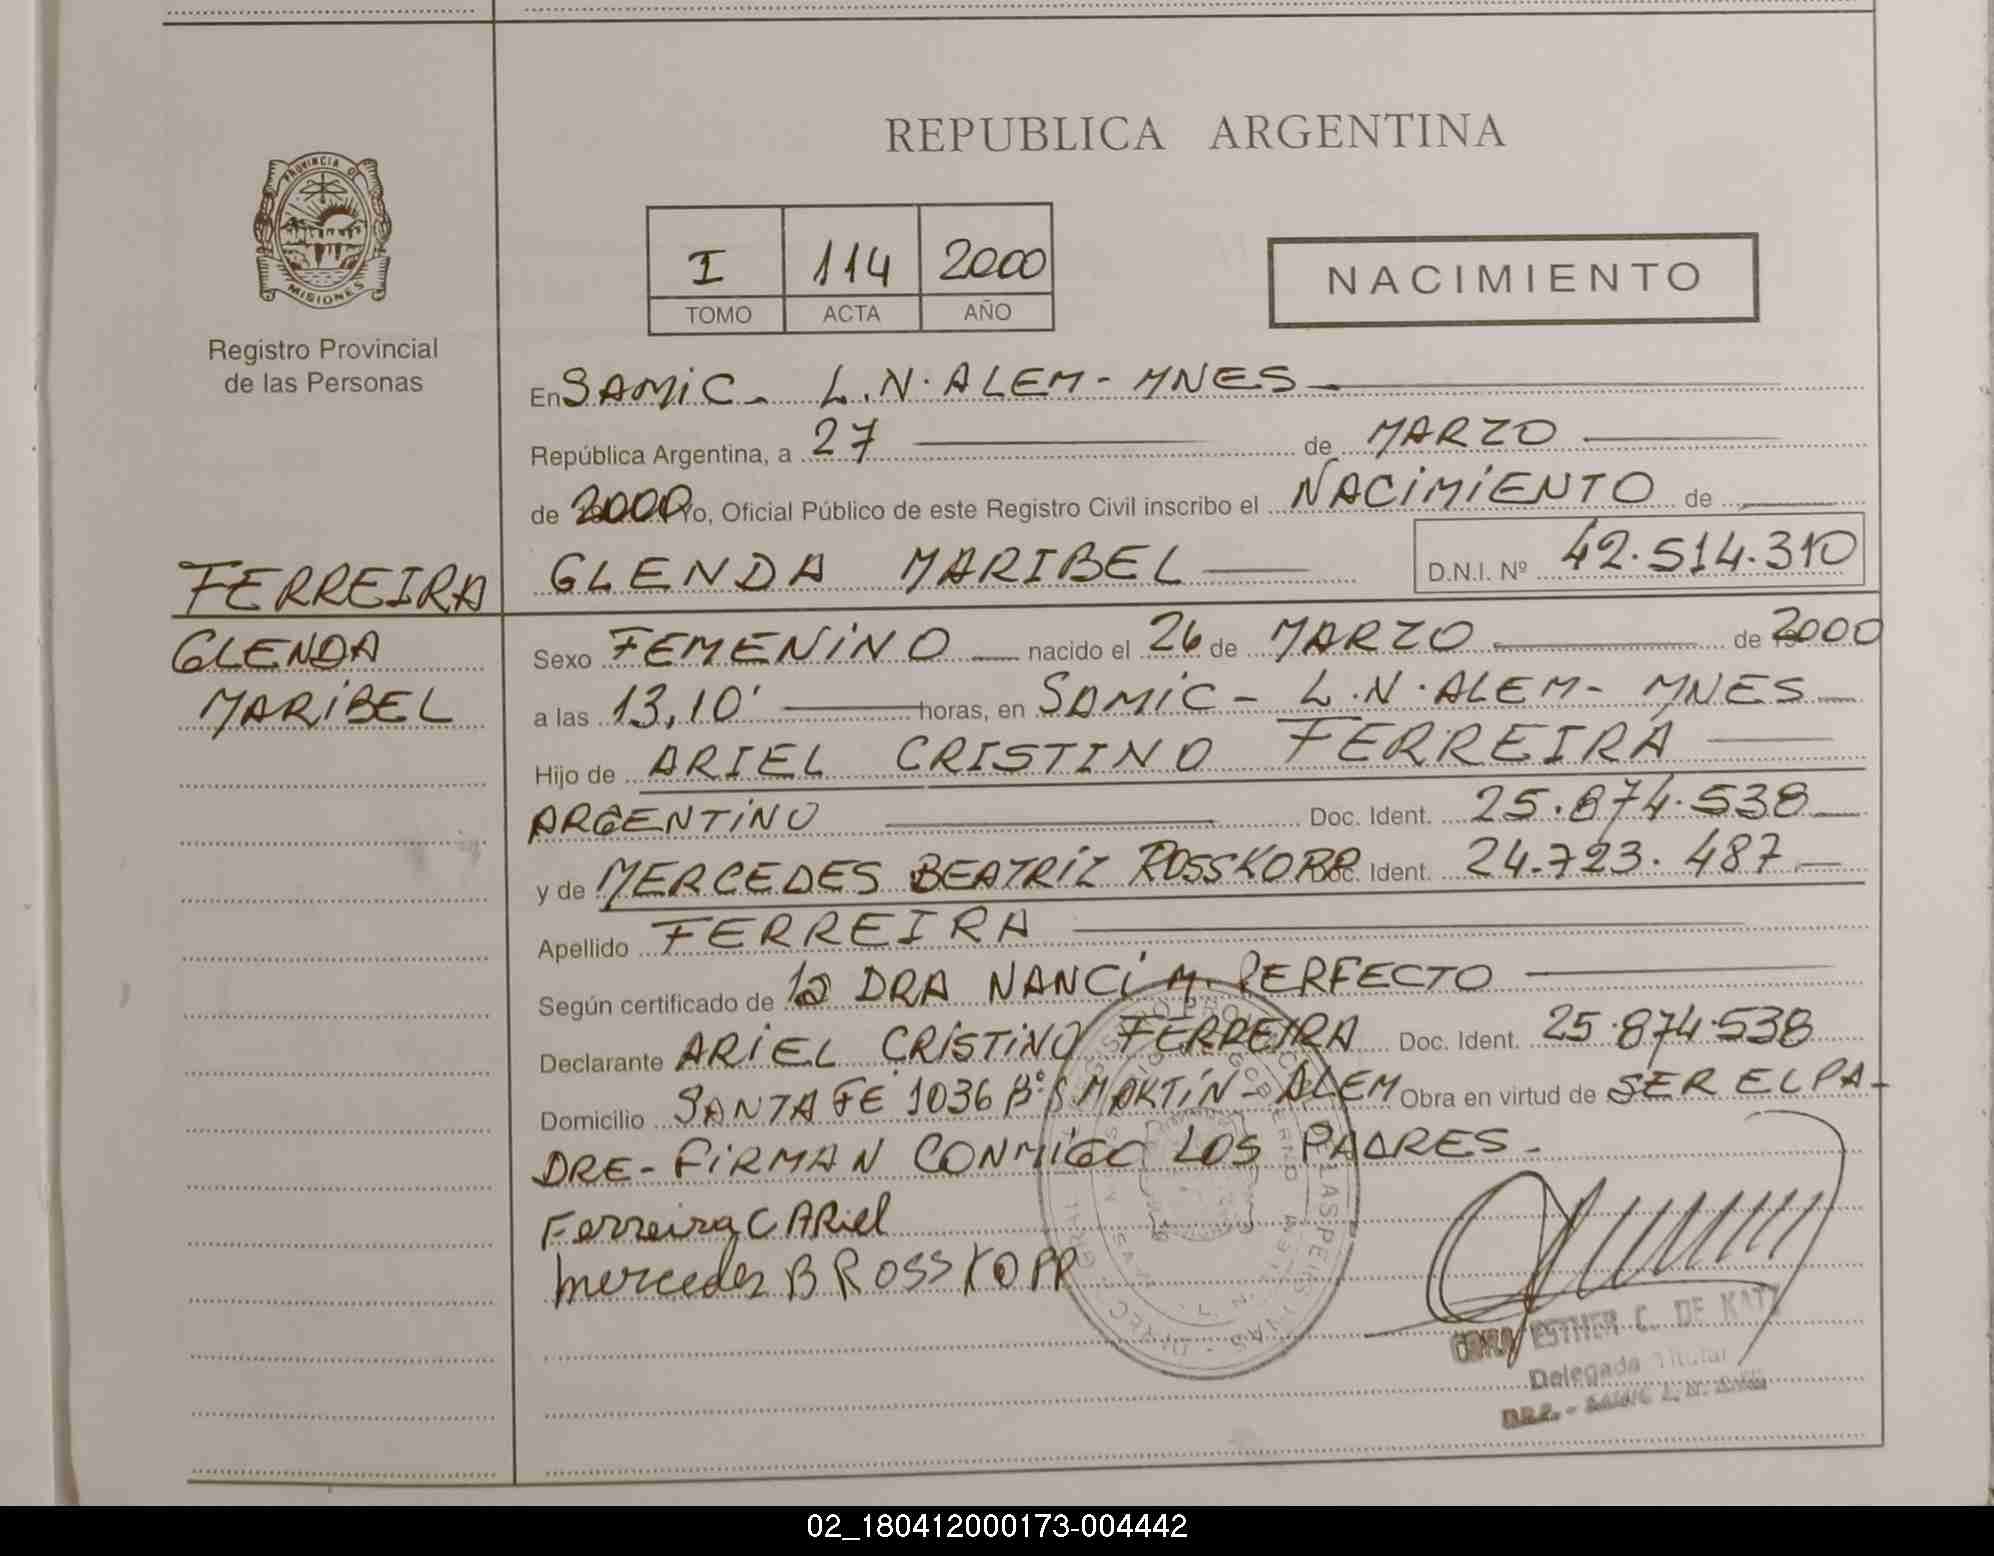 REPUBLICA ARGENTINA
PROVINCIA DE
MISIONES
Registro Provincial
de las Personas
I 114 2000
TOMO ACTA AÑO
NACIMIENTO
En SAMIC - L.N. ALEM - MNES
República Argentina, a 27 de MARZO
de 2000 Yo, Oficial Público de este Registro Civil inscribo el NACIMIENTO de
GLENDA MARIBEL D.N.I. Nº 42.514.310
FERREIRA
GLENDA
MARIBEL
Sexo FEMENINO nacido el 26 de MARZO de 2000
a las 13,10' horas, en SAMIC - L.N. ALEM - MNES
Hijo de ARIEL CRISTINO FERREIRA
ARGENTINO Doc. Ident. 25.874.538
y de MERCEDES BEATRIZ ROSSKOPP Doc. Ident. 24.723.487
Apellido FERREIRA
Según certificado de la DRA NANCI M. PERFECTO
Declarante ARIEL CRISTINO FERREIRA Doc. Ident. 25.874.538
Domicilio SANTA FE 1036 Bº S MARTIN - ALEM Obra en virtud de SER EL PA-
DRE - FIRMAN CONMIGO LOS PADRES -
Ferreira C ARiel
mercedes B ROSSKOPP
ESTHER C. DE
Delegada Titular
02_180412000173-004442